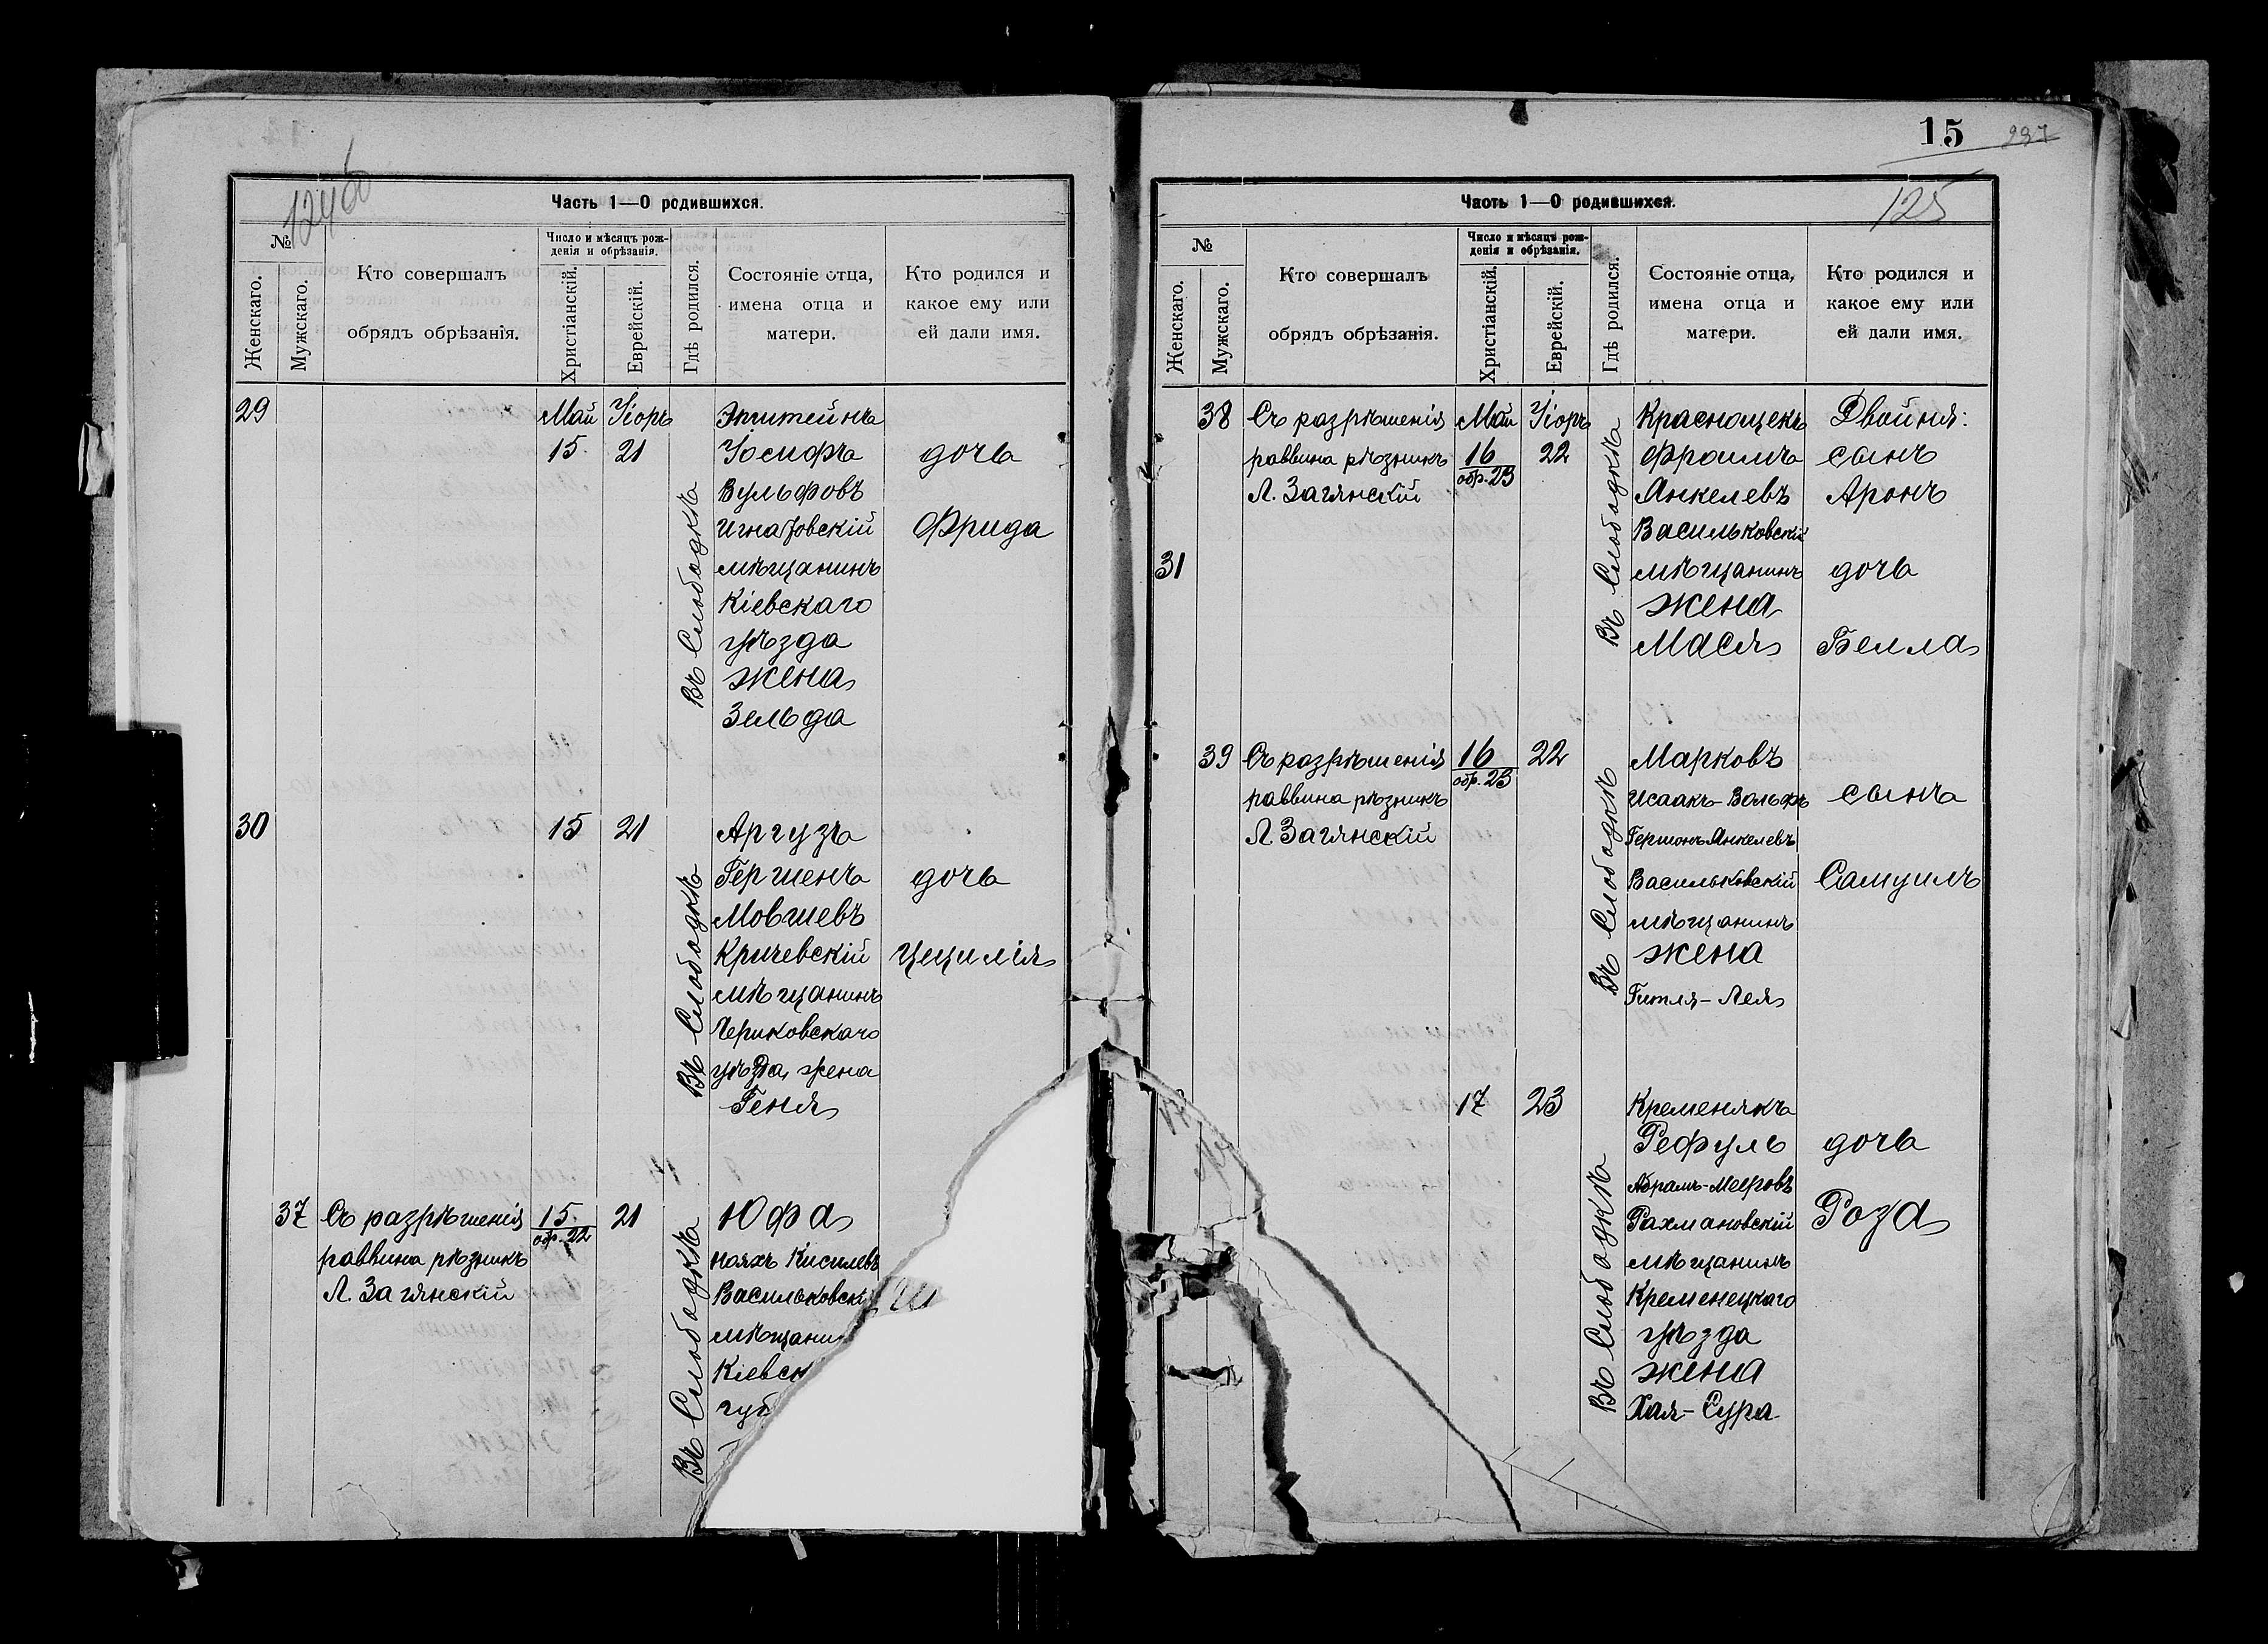 124 об
Часть 1—О родившихся.
№
Женскаго.
Мужскаго.
Кто совершалъ
обрядъ обрѣзанія.
Число и мѣсяцъ рож-
денія и обрѣзанія.
Христіанскій.
Еврейскій.
Гдѣ родился.
Состояніе отца,
имена отца и
матери.
Кто родился и
какое ему или
ей дали имя.
29
Май
Уіоръ
15
21
Въ Слободкѣ
Эпштейнъ
Іосифъ
Вульфовъ
Игнатовскій
мѣщанинъ
Кіевскаго
уѣзда
жена
Зельда
дочь
Фрида
30
15
21
Въ Слободкѣ
Аргузъ
Гершенъ
Мовшевъ
Кричевскій
мѣщанинъ
Чериковскаго
уѣзда, жена
Геня
дочь
Цецилія
37
Съ разрѣшенія
раввина рѣзникъ
Л. Загянскій
15
обр. 22
21
Въ Слободкѣ
Юфа
Ноахъ Киселевъ
Васильковскі
мѣщани
Кіевск
губ
15
237
125
Часть 1—О родившихся.
№
Женскаго.
Мужскаго.
Кто совершалъ
обрядъ обрѣзанія.
Число и мѣсяцъ рож-
денія и обрѣзанія.
Христіанскій.
Еврейскій.
Гдѣ родился.
Состояніе отца,
имена отца и
матери.
Кто родился и
какое ему или
ей дали имя.
38
Съ разрѣшенія
раввина рѣзникъ
Л. Загянскій
Май
16
обр. 23
Уіоръ
22
Въ Слободкѣ
Краснощекъ
Фроимъ
Янкелевъ
Васильковскій
мѣщанинъ
жена
Мася
Двойня:
сынъ
Аронъ
31
дочь
Бейла
39
Съ разрѣшенія
раввина рѣзникъ
Л. Загянскій
16
обр. 23
22
Въ Слободкѣ
Марковъ
Исаакъ-Вольфъ
Гершонъ-Янкелевъ
Васильковскій
мѣщанинъ
жена
Гитля-Лея
сынъ
Самуилъ
17
23
Въ Слободкѣ
Кременякъ
Рефуль
Абрамъ-Мееровъ
Рахмановскій
мѣщанинъ
Кременецкаго
уѣзда
жена
Хая-Сура
дочь
Роза